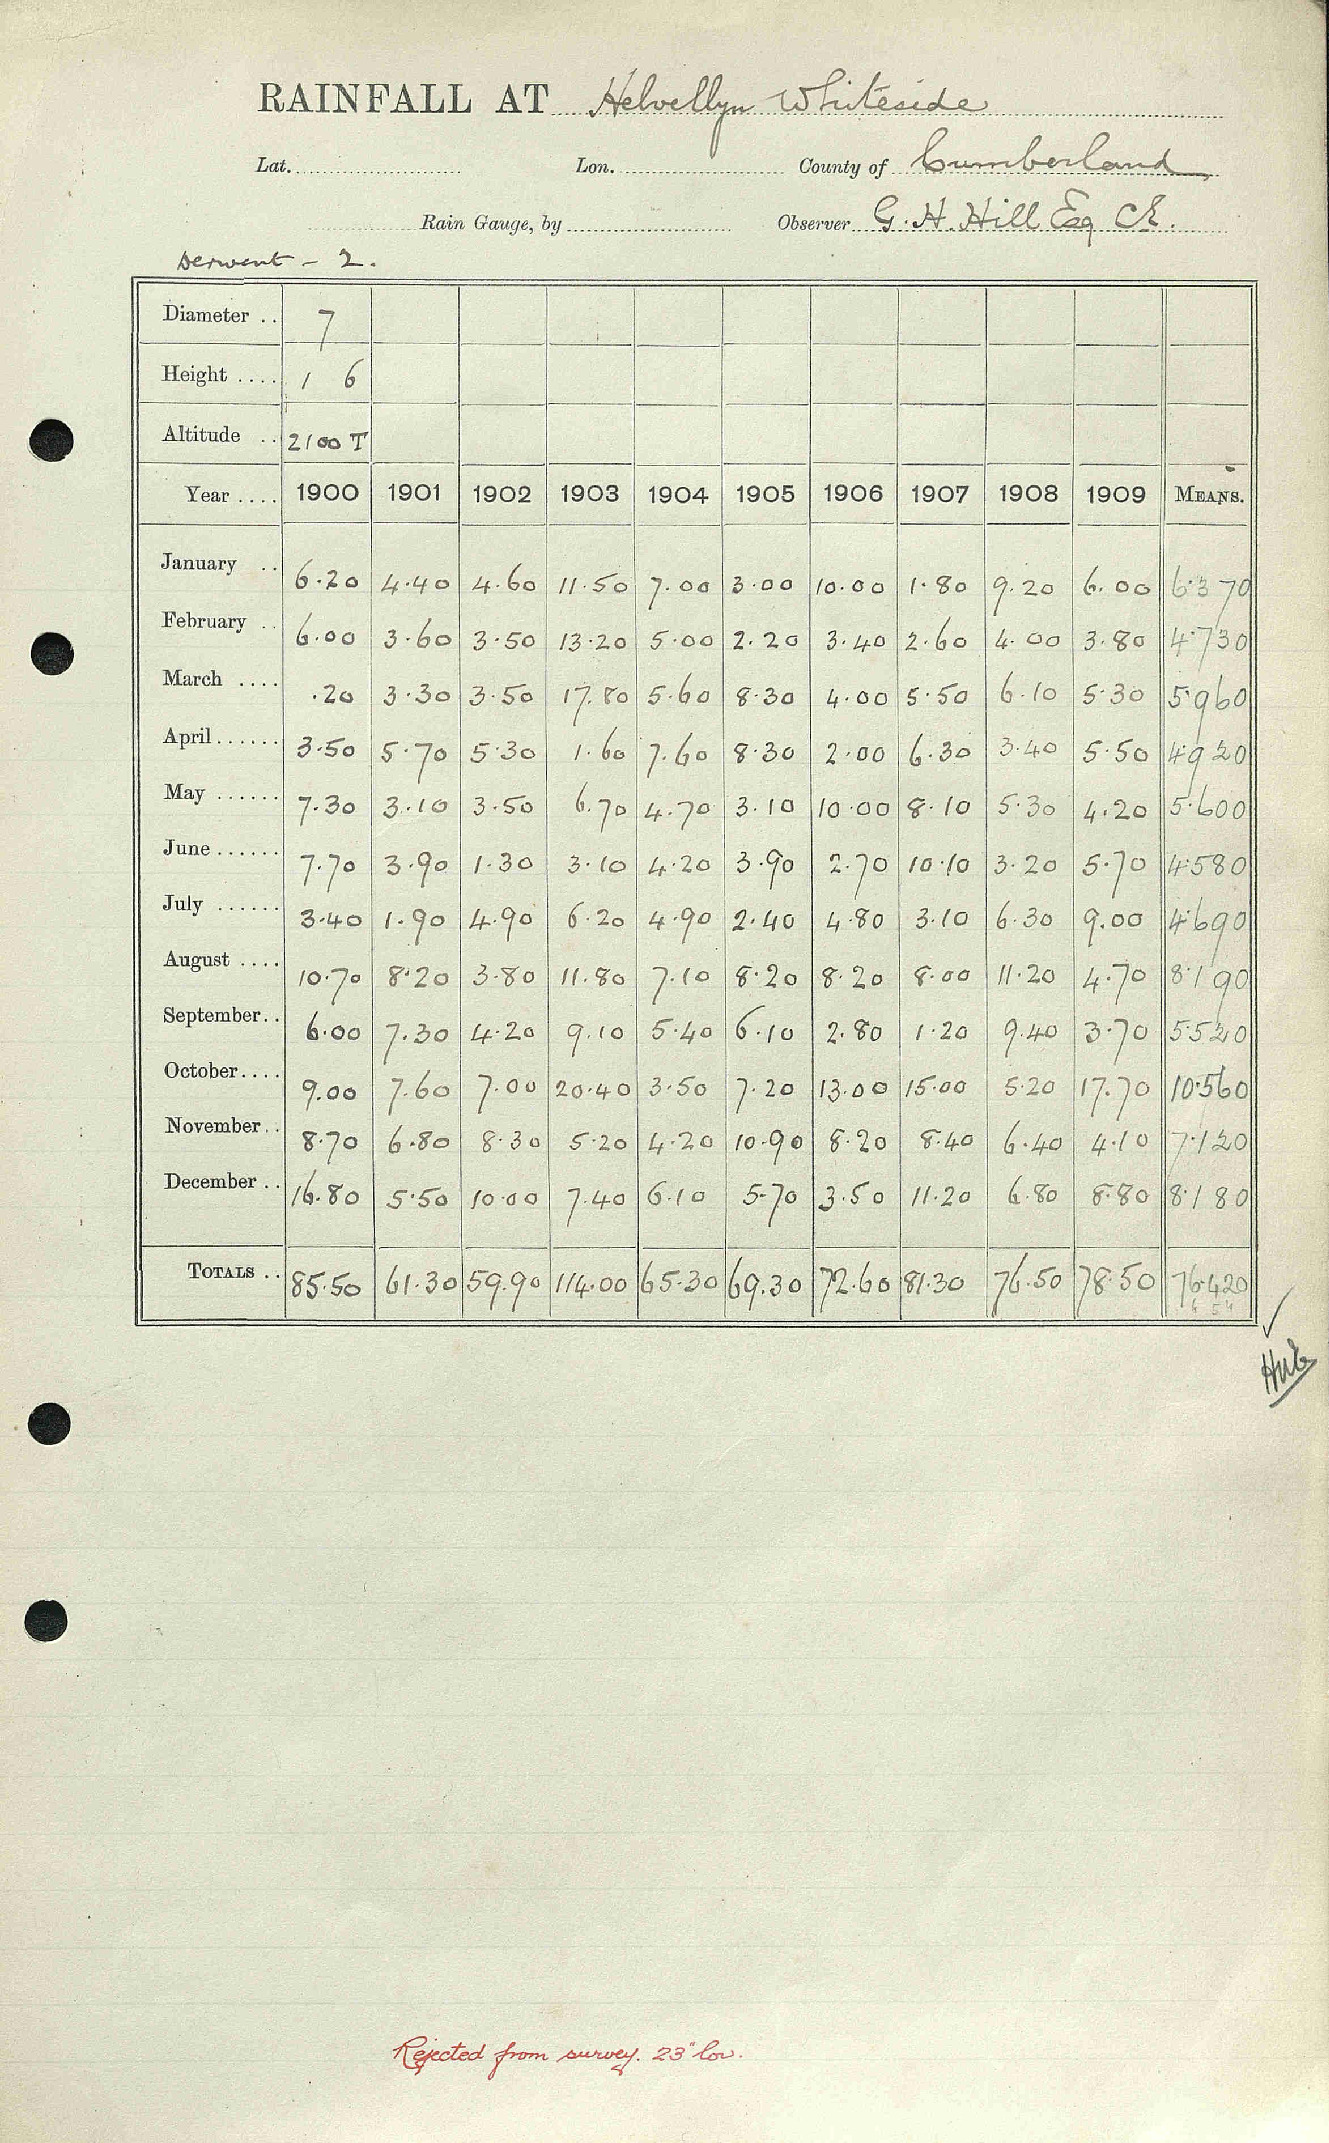 RAINFALL AT Helvellyn Whiteside
Lat. Lon. County of Cumberland
Rain Gauge, by Observer G. H. Hill Esq CE.
Derwent - 2.
Diameter .. 7
Height .... 1 6
Altitude .. 2100 T
Year .... 1900 1901 1902 1903 1904 1905 1906 1907 1908 1909 MEANS.
January .. 6.20 4.40 4.60 11.50 7.00 3.00 10.00 1.80 9.20 6.00 6.370
February .. 6.00 3.60 3.50 13.20 5.00 2.20 3.40 2.60 4.00 3.80 4.730
March .... .20 3.30 3.50 17.80 5.60 8.30 4.00 5.50 6.10 5.30 5.960
April...... 3.50 5.70 5.30 1.60 7.60 8.30 2.00 6.30 3.40 5.50 4.920
May ...... 7.30 3.10 3.50 6.70 4.70 3.10 10.00 8.10 5.30 4.20 5.600
June ...... 7.70 3.90 1.30 3.10 4.20 3.90 2.70 10.10 3.20 5.70 4.580
July ...... 3.40 1.90 4.90 6.20 4.90 2.40 4.80 3.10 6.30 9.00 4.690
August .... 10.70 8.20 3.80 11.80 7.10 8.20 8.20 8.00 11.20 4.70 8.190
September.. 6.00 7.30 4.20 9.10 5.40 6.10 2.80 1.20 9.40 3.70 5.520
October.... 9.00 7.60 7.00 20.40 3.50 7.20 13.00 15.00 5.20 17.70 10.560
November.. 8.70 6.80 8.30 5.20 4.20 10.90 8.20 8.40 6.40 4.10 7.120
December .. 16.80 5.50 10.00 7.40 6.10 5.70 3.50 11.20 6.80 8.80 8.180
TOTALS .. 85.50 61.30 59.90 114.00 65.30 69.30 72.60 81.30 76.50 78.50 76.420
Rejected from survey. 23" low.